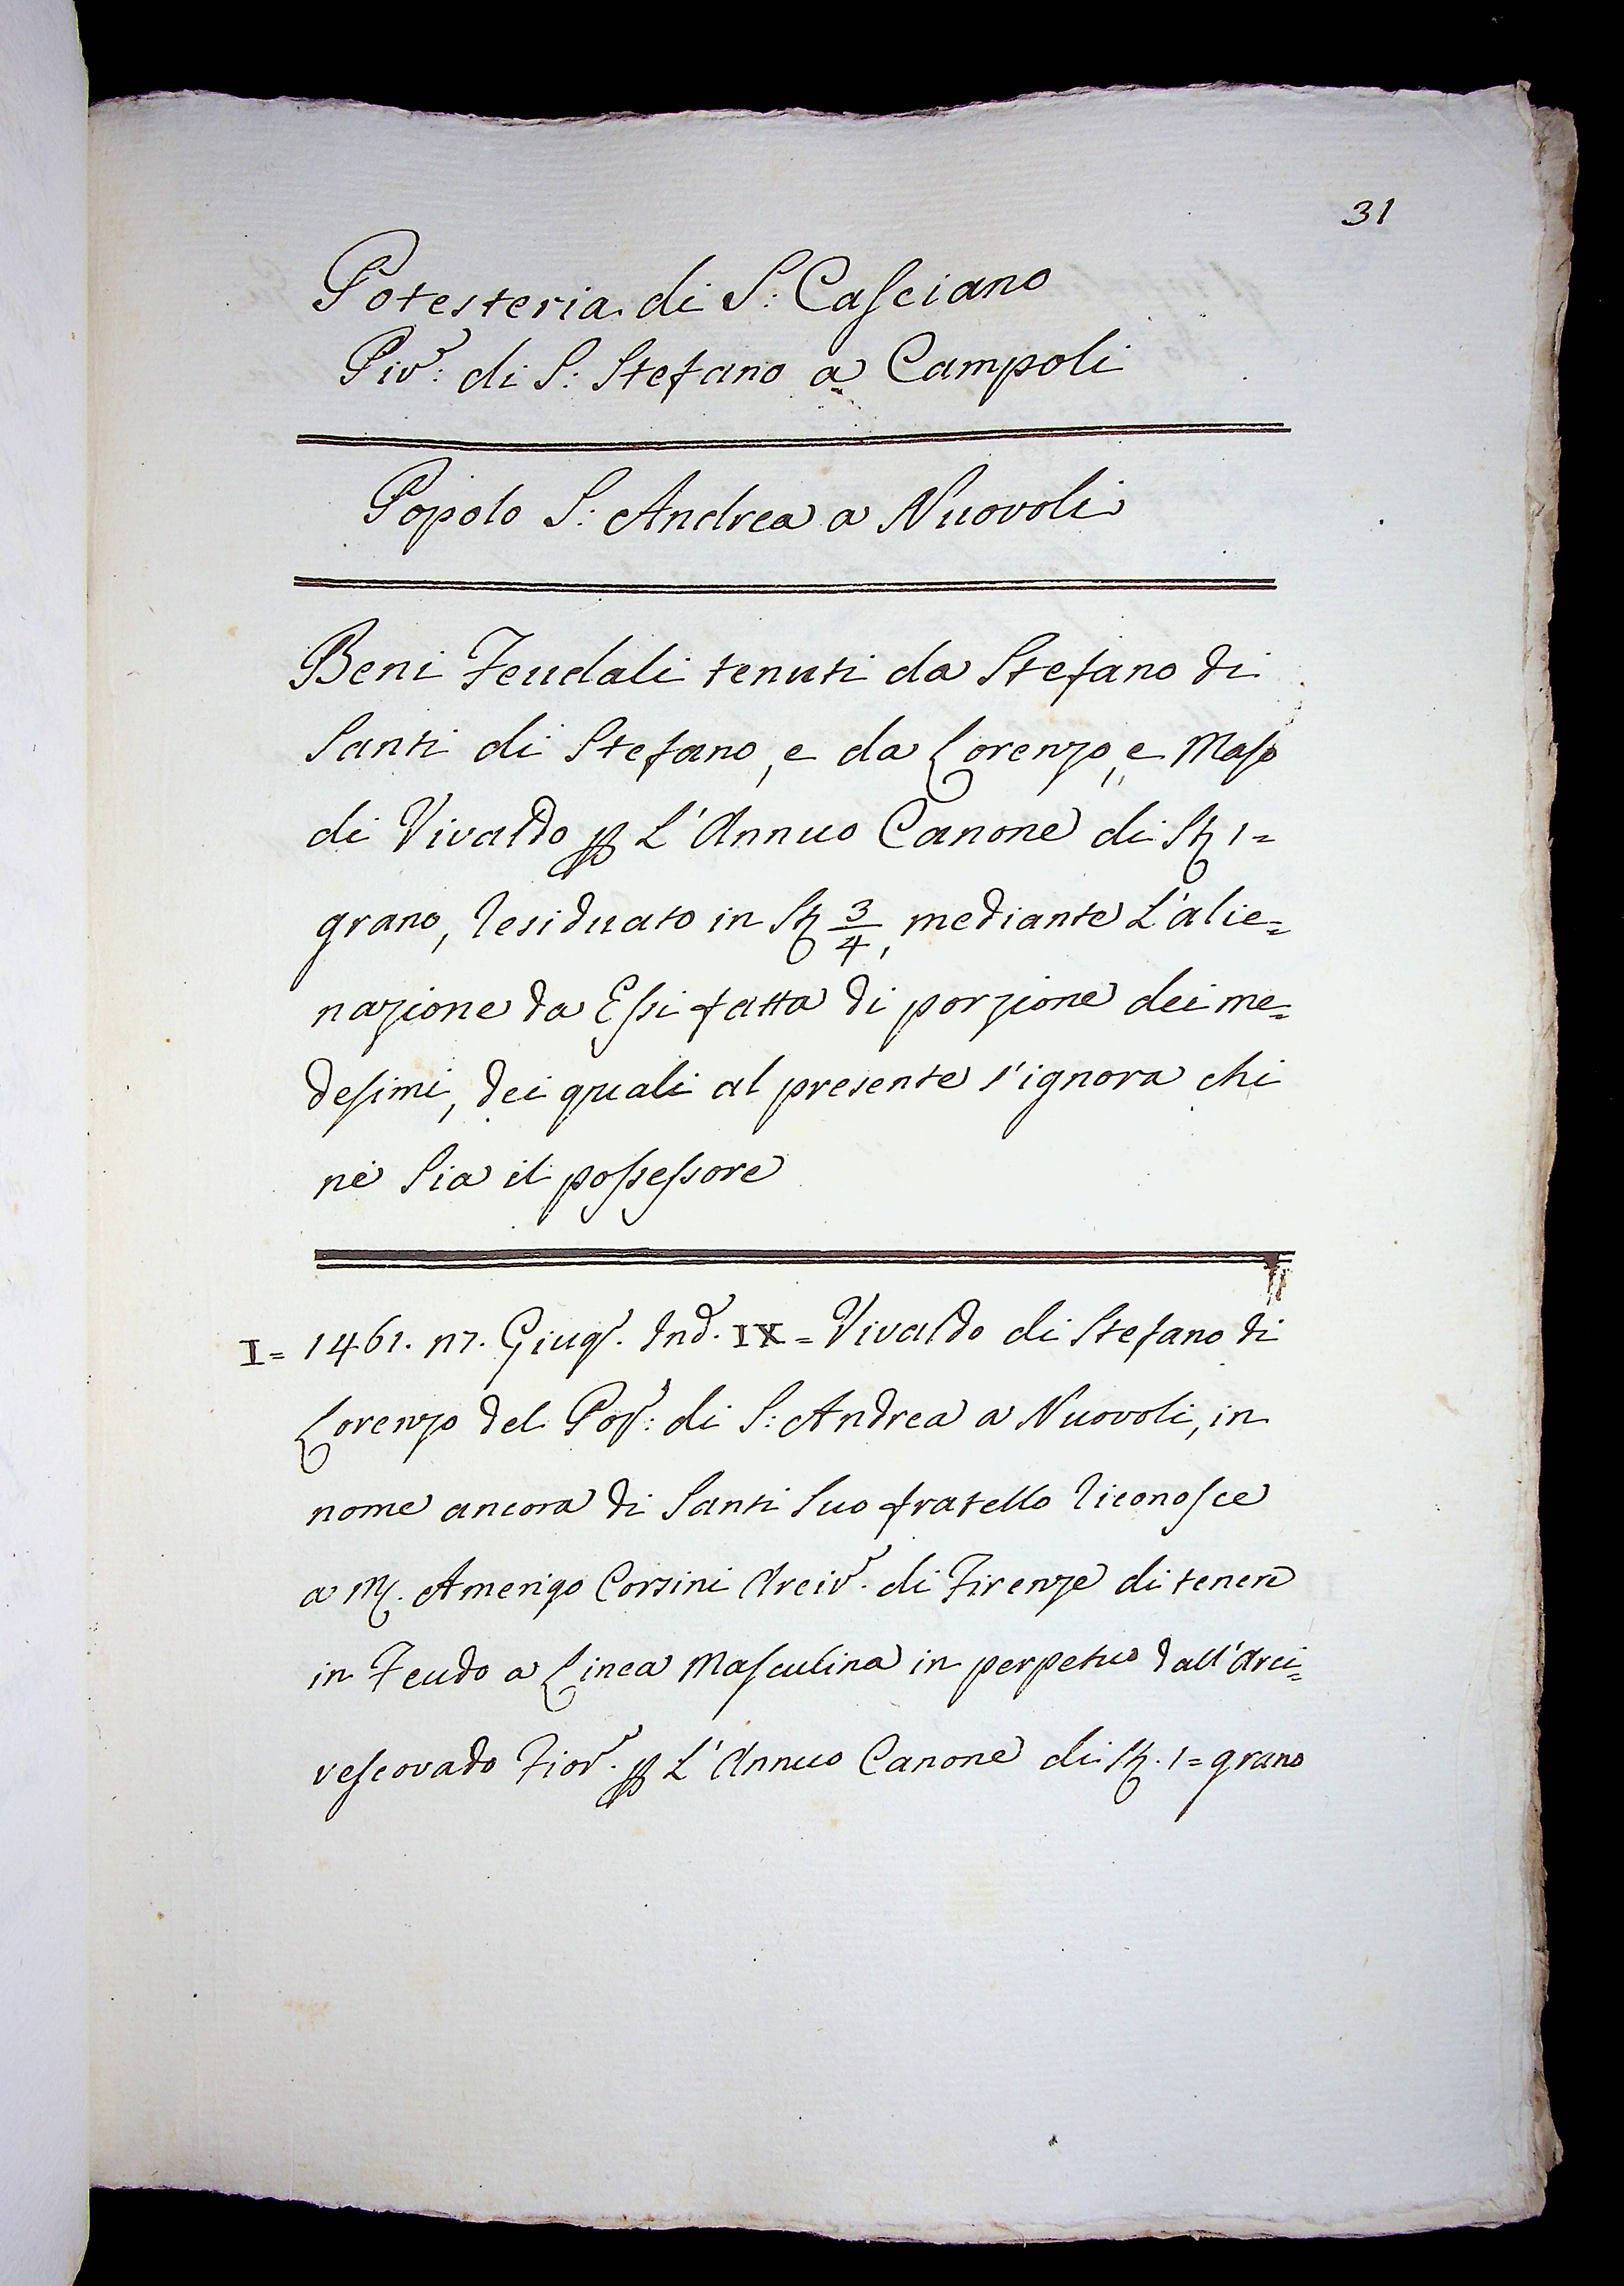 31
Potesteria di S: Casciano
Piv.e: di S: Stefano a Campoli
Popolo S: Andrea a Nuovoli
Beni Feudali tenuti da Stefano di
Santi di Stefano, e da Lorenzo, e Maso
di Vivaldo p L'Annuo Canone di St 1=
grano, residuato in St 3/4, mediante L'alie=
nazione da Essi fatta di porzione dei me=
desimi, dei quali al presente s'ignora chi
ne Sia il possessore
I= 1461. 17. Giug. Ind. IX = Vivaldo di Stefano di
Lorenzo del Pop: di S: Andrea a Nuovoli, in
nome ancora di Santi Suo fratello riconosce
a M. Amerigo Corsini Arciv. di Firenze di tenere
in Feudo a Linea Masculina in perpetuo dall'Arci=
vescovado Fior. p L'Annuo Canone di St. 1= grano